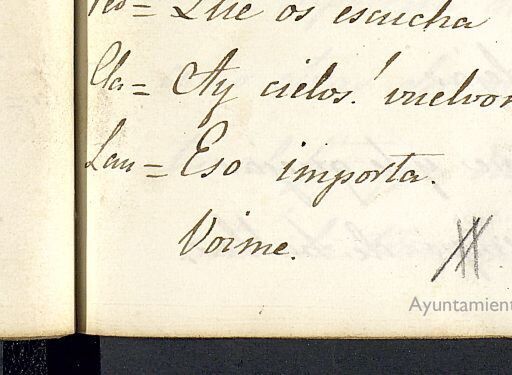 Ped = Que os escucha
Cla = Ay cielos! vuelvo
Lau = Eso importa.
Voime.
Ayuntamient